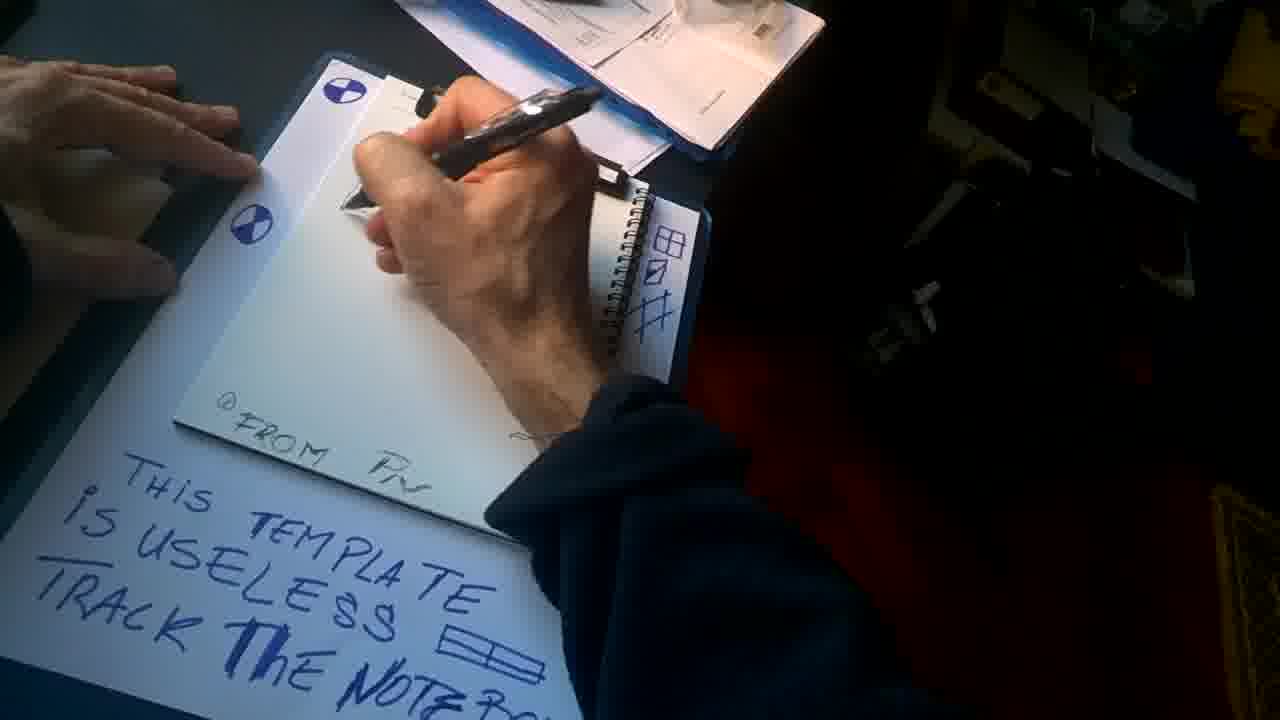 FROM
THIS TEMPLATE
is USELESS
TRACK THE